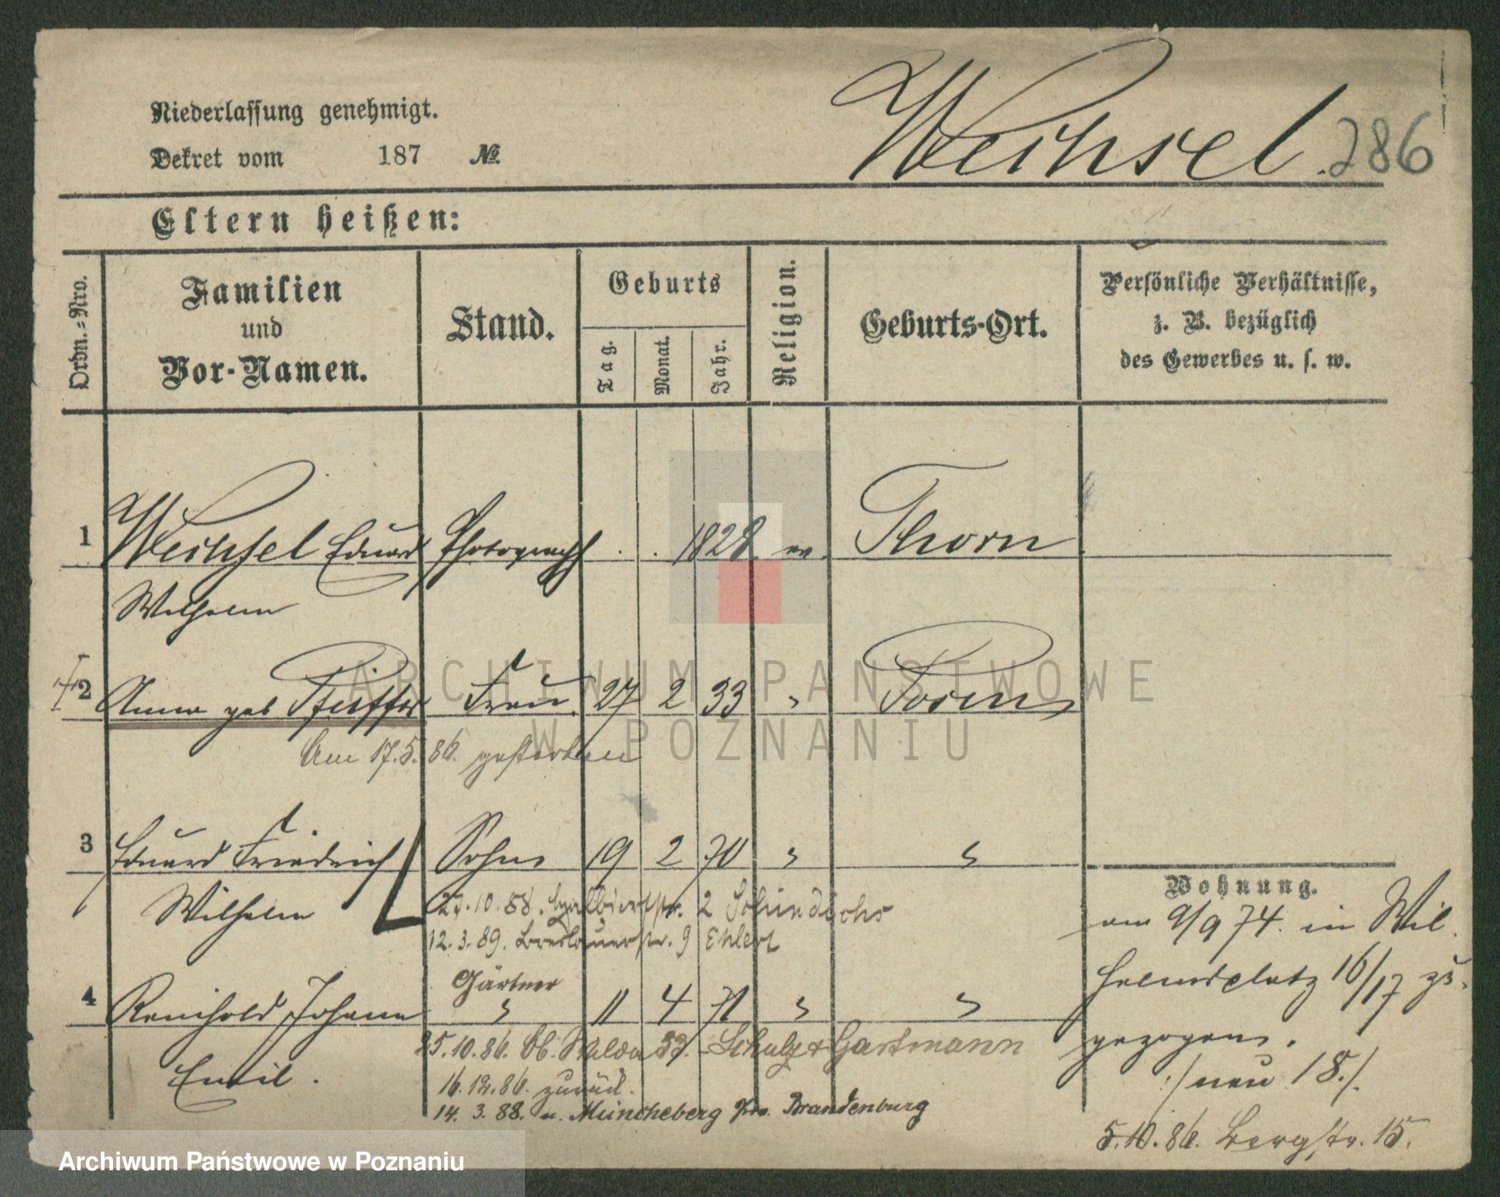 Niederlassung genehmigt.
Dekret vom 187 №
Weichsel 286
Eltern heißen:
Ordn.=Nro.
Familien
und
Vor-Namen.
Stand.
Geburts
Tag. Monat. Jahr.
Religion.
Geburts-Ort.
Persönliche Verhältnisse,
z. B. bezüglich
des Gewerbes u. s. w.
1 Weichsel Eduard Photograph . . 1828 ev. Thorn
Wilhelm
2 Anna geb Pfeiffer Frau 27 2 33 " Posen
Am 17.5.86. gestorben
3 Eduard Friedrich Sohn 19 2 70 " "
Wilhelm
27.10.88. 2
12.3.89. Breslauerstr. 9 Ehlert
Gärtner
4 Reinhold Johann " 11 4 71 " "
Emil.
25.10.86. Ob. Wilda 33. Schulz Gartmann
16.12.86. zurück.
14.3.88. n. Müncheberg Prv. Brandenburg
Wohnung.
am 9/9 74. in Wil
helmsplatz 16/17 zu-
gezogen.
:/ neu 18./.
5.10.86. Bergstr. 15.
ARCHIWUM PAŃSTWOWE
W POZNANIU
Archiwum Państwowe w Poznaniu